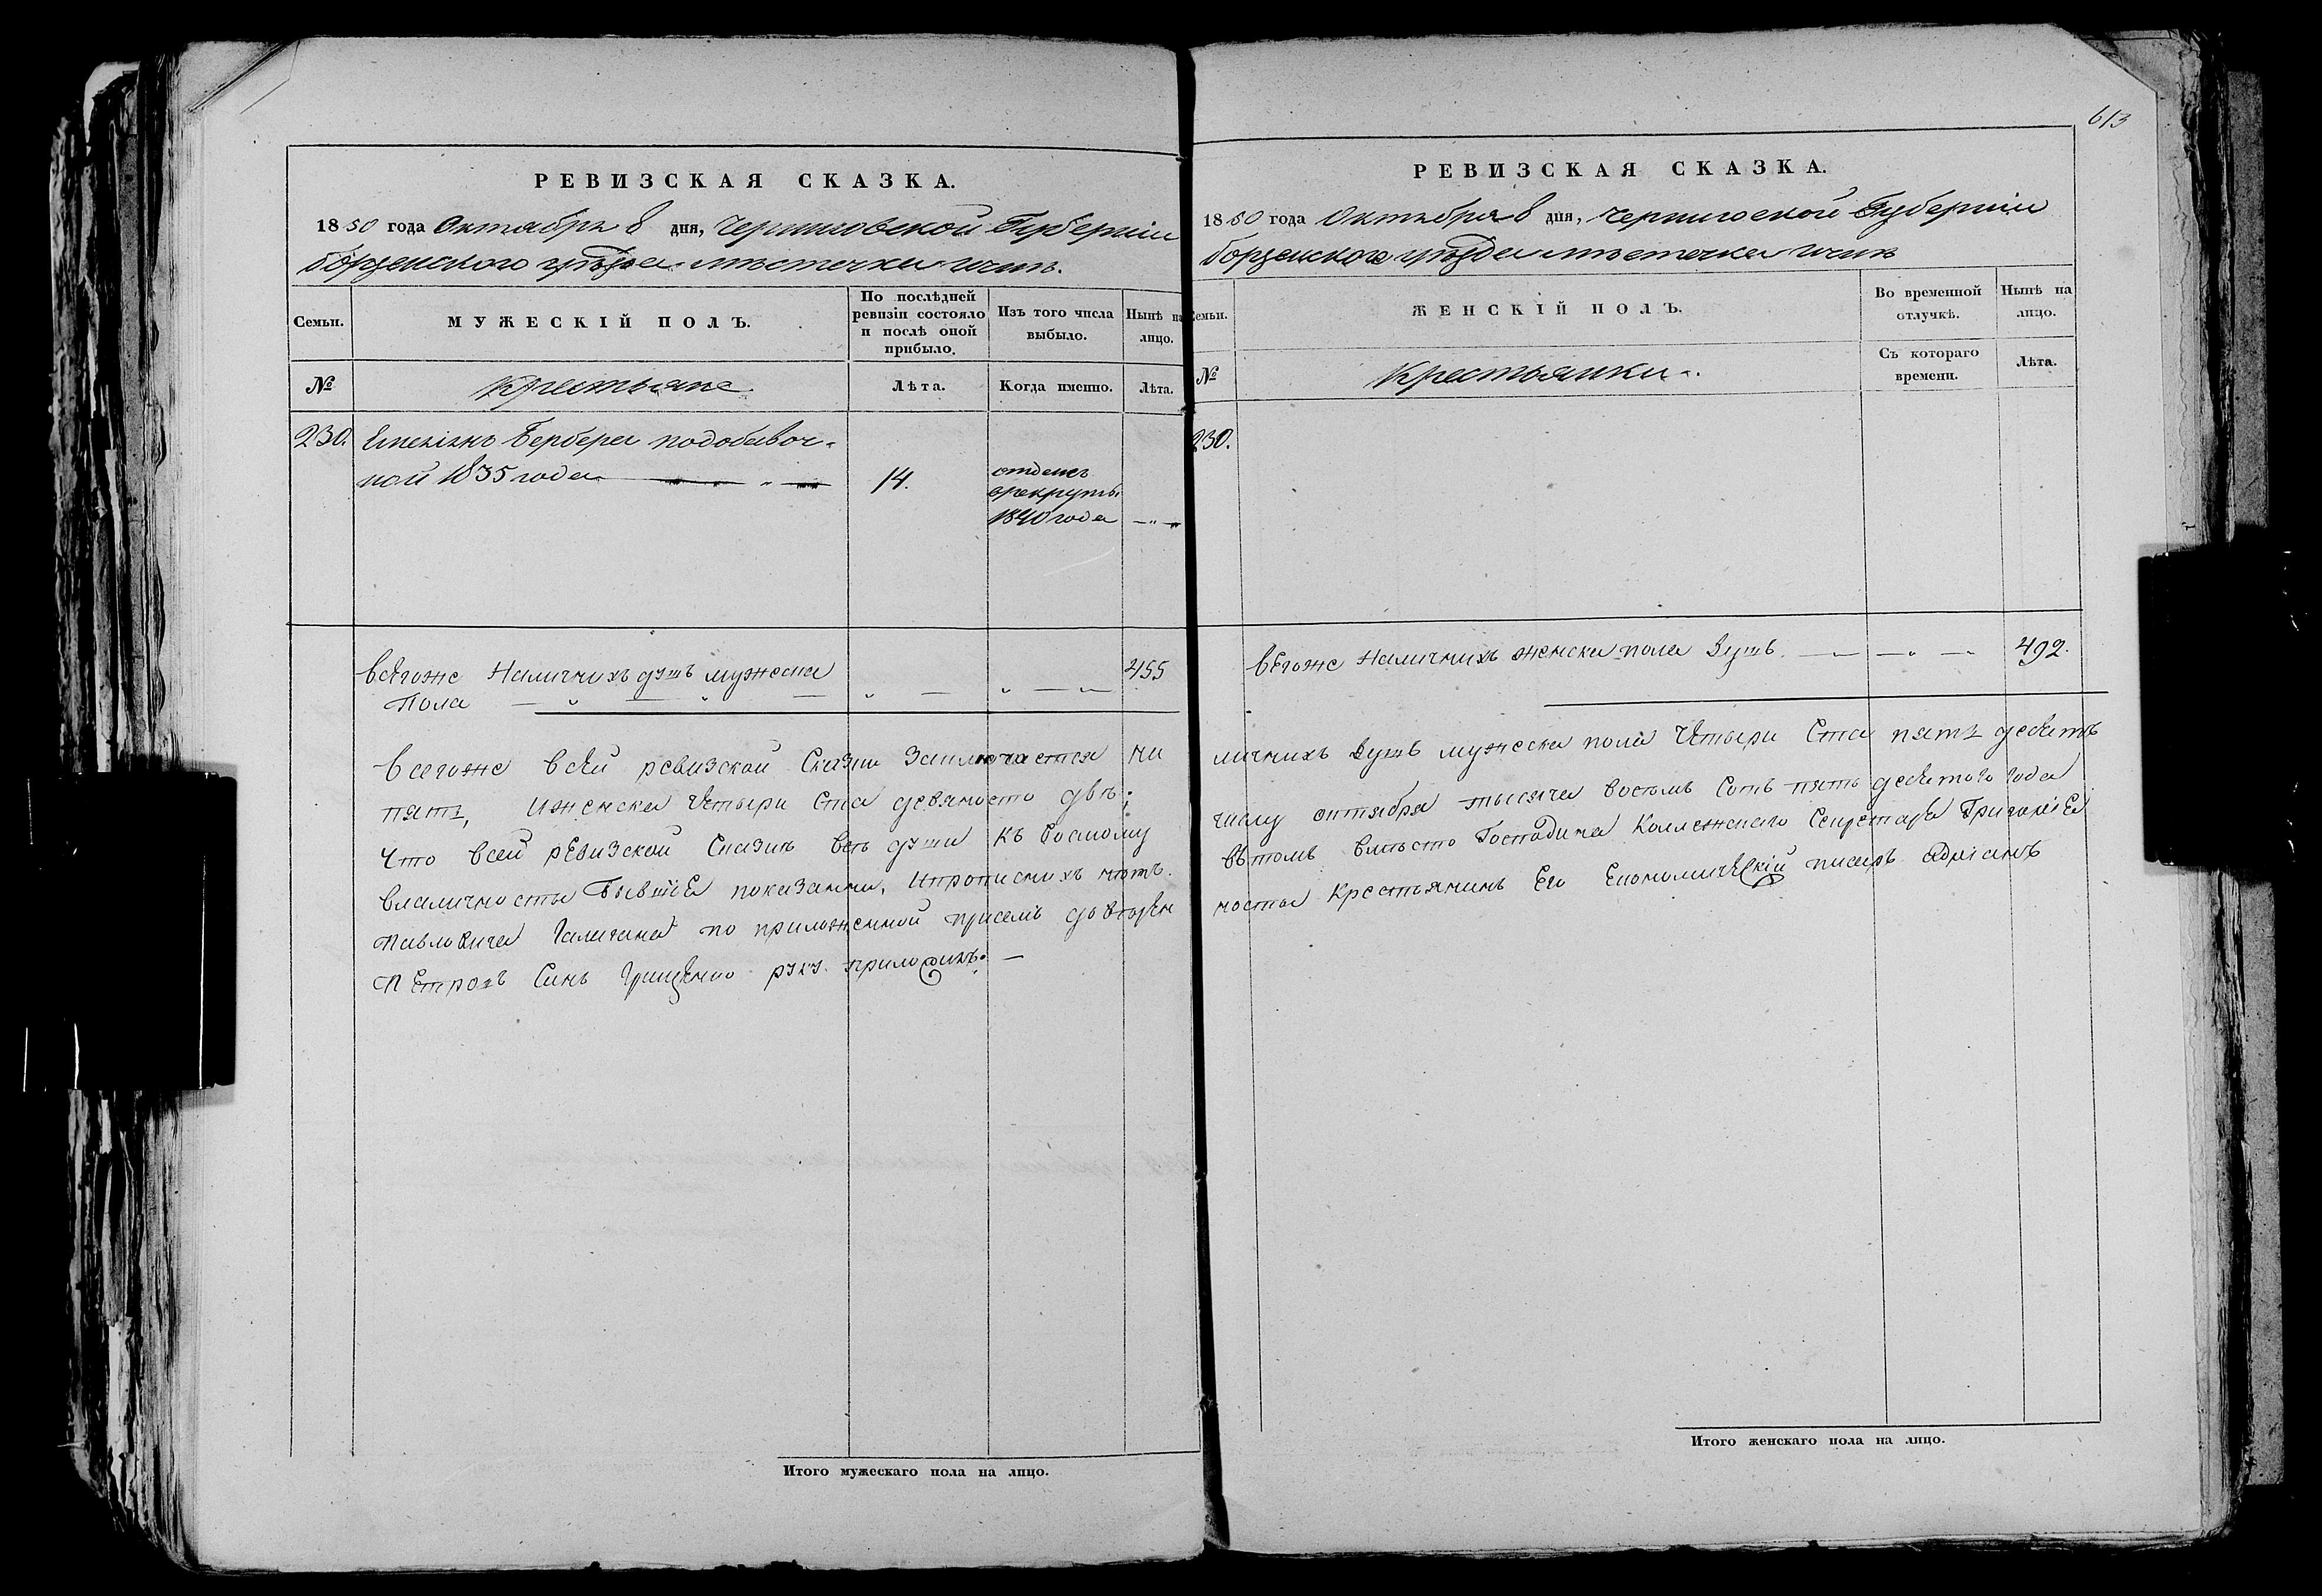 613
РЕВИЗСКАЯ СКАЗКА.
1850 года Октября 8 дня, Черниговской Губерніи
борзенского уѣзда мѣстечка Ични.
Семьи.
МУЖЕСКІЙ ПОЛЪ.
По послѣдней
ревизіи состояло
и послѣ оной
прибыло.
Изъ того числа
выбыло.
Нынѣ на
лицо.
№
Крестьяне
Лѣта.
Когда именно.
Лѣта.
230. Бербера подобавоч-
ной 1835 года
14.
отданъ
врекруты
1840 года
всегоже Наличнихъ душъ мужеска
Пола
455
всегоже всей ревизской Сказки Заключается на
пять, Иженска Четыри Ста девяносто двѣ;
Что всей ревизской Сказкѣ всѣ души къ восмому
вналичности Бывшіе показанни, Ипрописнихъ нѣтъ.
Павловича Галагана по приложенной присемъ довѣрен
Петровъ Синъ Грищенко руку приложилъ.
РЕВИЗСКАЯ СКАЗКА.
1850 года Октября 8 дня, Черниговской Губерніи
борзенского уѣзда мѣстечка Ични
Семьи.
ЖЕНСКІЙ ПОЛЪ.
Во временной
отлучкѣ.
Нынѣ на
лицо.
№
Крестьянки.
Съ котораго
времени.
Лѣта.
230.
всегоже Наличнихъ женска пола Душъ.
492.
личнихъ Душъ мужеска пола Четыри Ста пять десятъ
числу октября тысяча восемъ Сотъ пять десятого Года
вѣтомъ вмѣсто Господина Коллежского Секретаря Григорiя
ности Крестьянинъ Его Економическій писаръ Адріанъ
Итого мужескаго пола на лицо.
Итого женскаго пола на лицо.